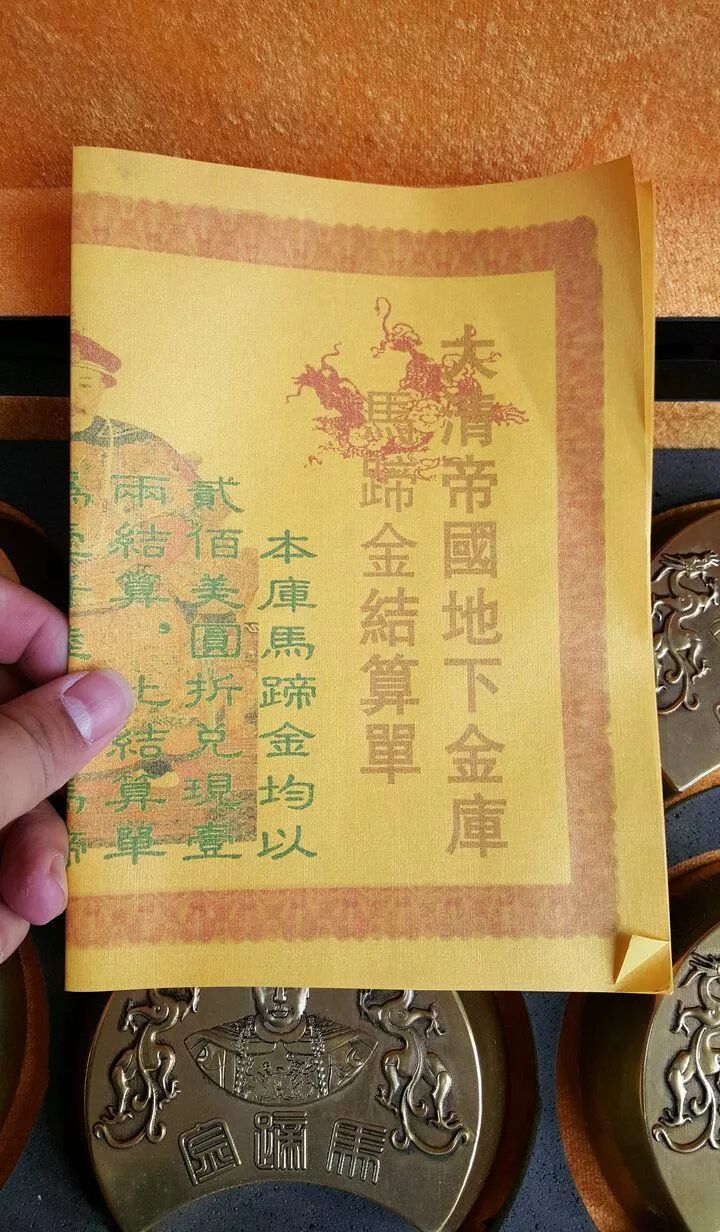 大清帝國地下金庫
馬蹄金結算單
本庫馬蹄金均以
貳佰美圓折兌現壹
兩結算，結算單
馬蹄金